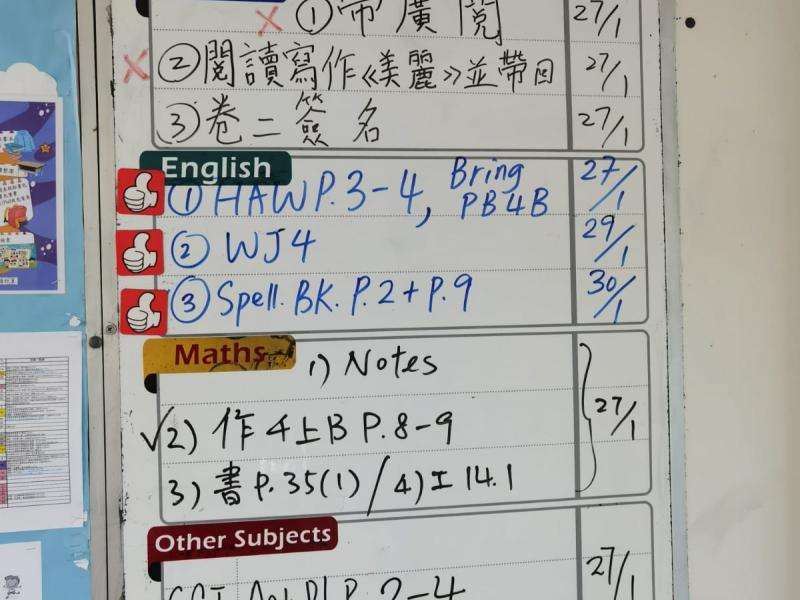 ①帶廣閱 27/1
②閱讀寫作《美麗》並帶回 27/1
③卷二簽名 27/1
English
① HAW P.3-4, Bring PB4B 27/1
② WJ4 29/1
③ Spell. BK. P.2+P.9 30/1
Maths
1) Notes
√2) 作4上B P.8-9 27/1
3) 書 P.35(1) / 4) 工 14.1
Other Subjects
P.2-4 27/1